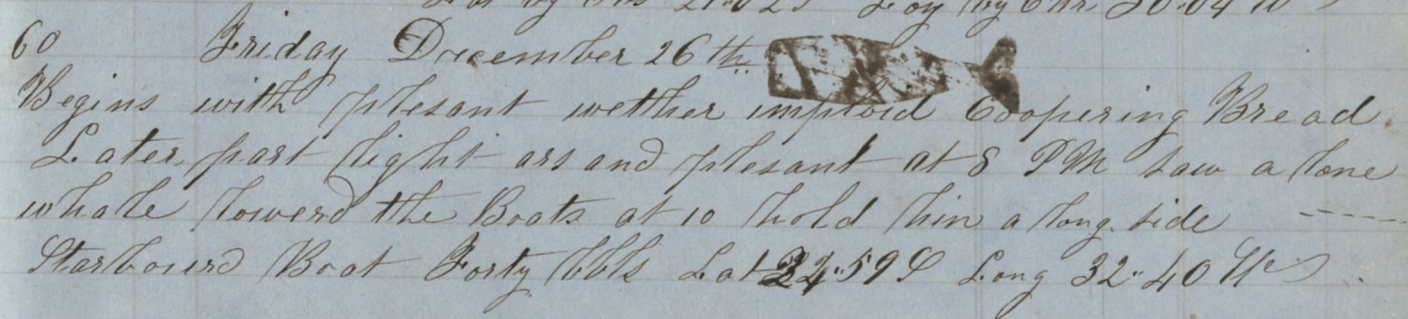 Lat by Obs 21.02 S Long by Chr 30.04 W
60 Friday December 26 th
Begins with plesant wether imploid Coopering Bread.
Later part light ars and plesant at 8 PM saw a lone
whale lowerd the Boats at 10 hold him a long side
Starbourd Boat Forty bbls Lat 24"59 S Long 32"40 W